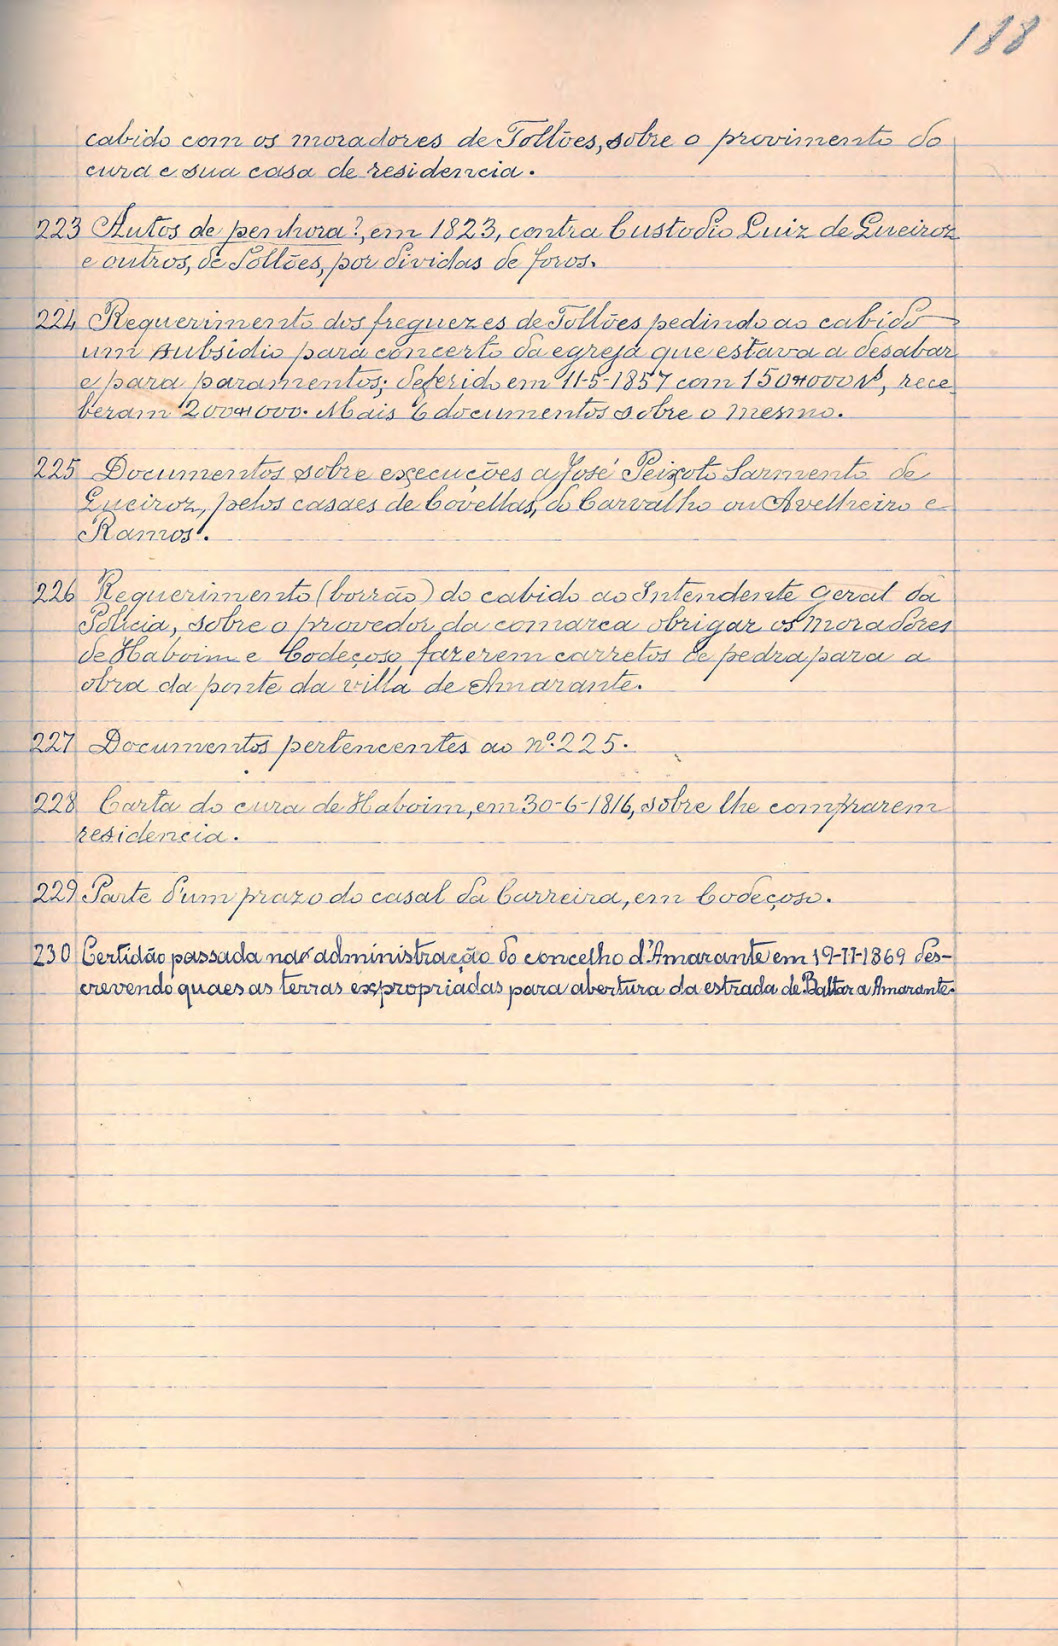 188
cabido com os moradores de Tollões, sobre o provimento do
cura e sua casa de residencia.
223 Autos de penhora?, em 1823, contra Custodio Luiz de Queiroz
e outros, de Tollões, por dividas de foros.
224 Requerimento dos freguezes de Tollões pedindo ao cabido
um subsidio para concerto da egreja que estava a desabar
e para paramentos; deferido em 11-5-1857 com 150$000 rs, rece
beram 200$000. Mais 6 documentos sobre o mesmo.
225 Documentos sobre execuções a José Peixoto Sarmento de
Queiroz, pelos casaes de Covellas, do Carvalho ou Avelheiro e
Ramos.
226 Requerimento (borrão) do cabido ao Intendente geral da
Policia, sobre o provedor da comarca obrigar os moradores
de Haboim e Codeçoso fazerem carretos de pedra para a
obra da ponte da villa de Amarante.
227 Documentos pertencentes ao nº 225.
228 Carta do cura de Haboim, em 30-6-1816, sobre lhe comprarem
residencia.
229 Parte d'um prazo do casal da Carreira, em Codeçoso.
230 Certidão passada na administração do concelho d'Amarante em 19-II-1869 des-
crevendo quaes as terras expropriadas para abertura da estrada de Baltar a Amarante.